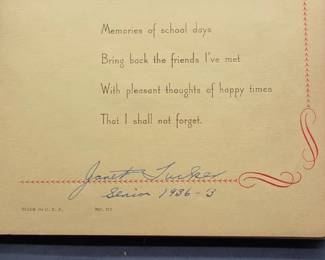 Memories of school days
Bring back the friends I've met
With pleasant thoughts of happy times
That I shall not forget.
Janet Tucker
Senior 1936-3